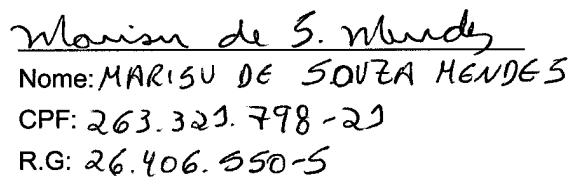 Marisu de S. Mendes
Nome: MARISU DE SOUZA MENDES
CPF: 263.321.798-21
R.G: 26.406.550-5